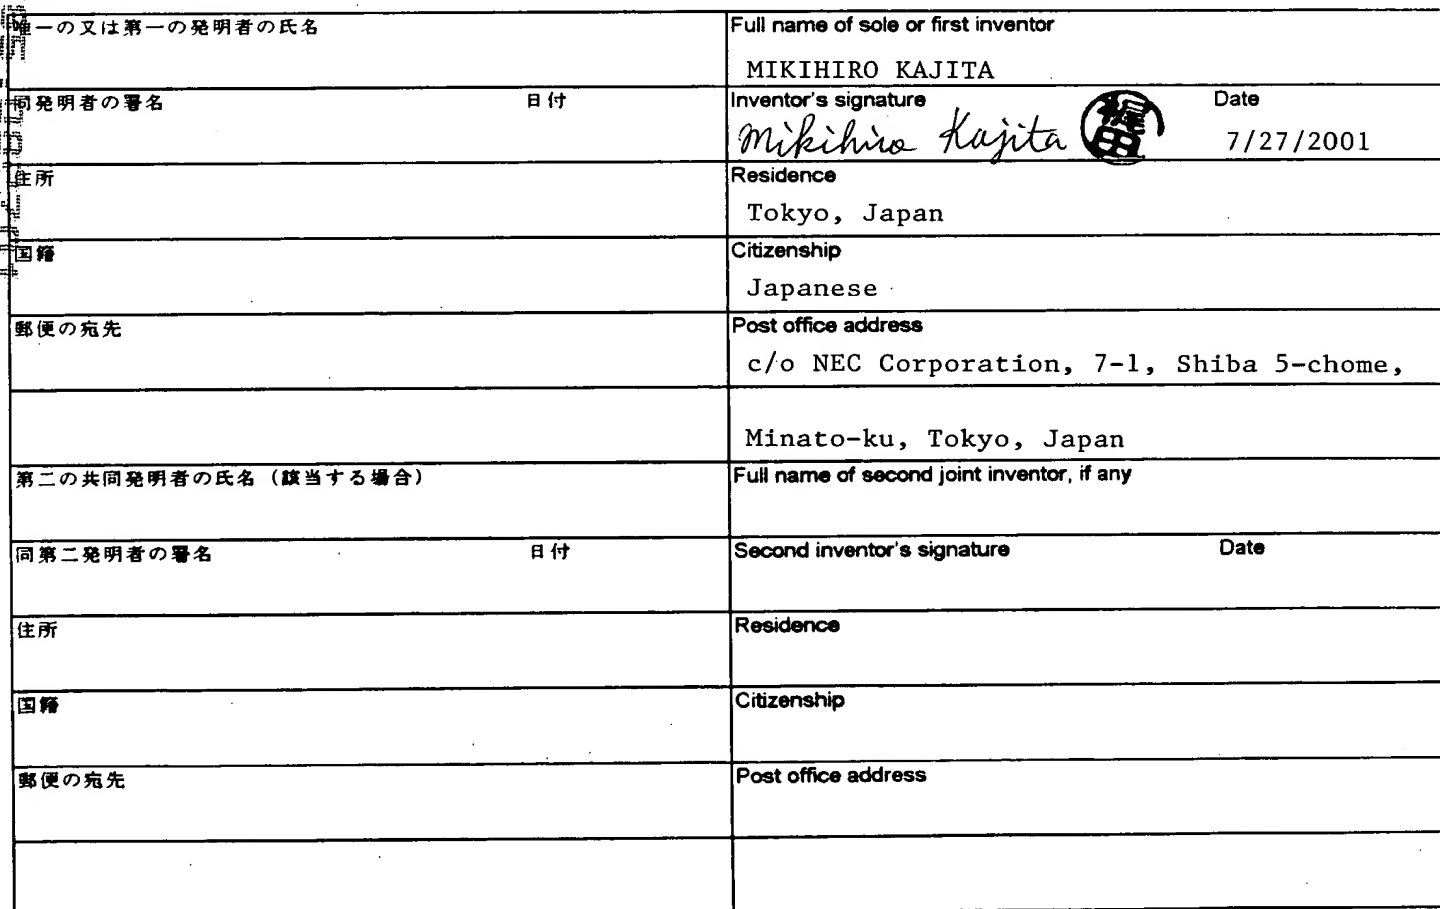 唯一の又は第一の発明者の氏名
Full name of sole or first inventor
MIKIHIRO KAJITA
同発明者の署名 日付
Inventor's signature Date
Mikihiro Kajita 梶田 7/27/2001
住所
Residence
Tokyo, Japan
国籍
Citizenship
Japanese
郵便の宛先
Post office address
c/o NEC Corporation, 7-1, Shiba 5-chome,
Minato-ku, Tokyo, Japan
第二の共同発明者の氏名（該当する場合）
Full name of second joint inventor, if any
同第二発明者の署名 日付
Second inventor's signature Date
住所
Residence
国籍
Citizenship
郵便の宛先
Post office address